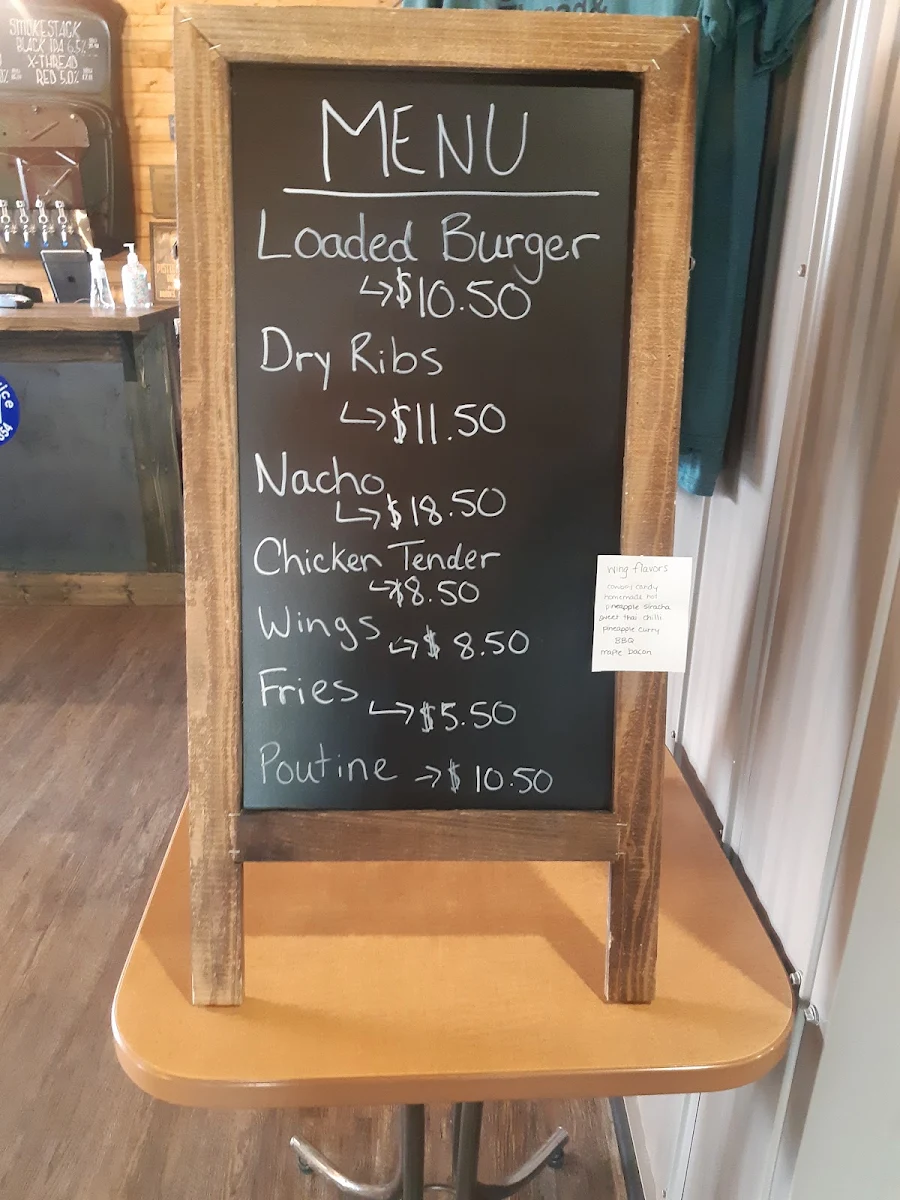 SMOKESTACK
BLACK IPA 6.5%
X-THREAD
RED 5.0%
MENU
Loaded Burger
↳$10.50
Dry Ribs
↳$11.50
Nacho
↳$18.50
Chicken Tender
↳$8.50
Wings
↳$ 8.50
Fries
↳$5.50
Poutine →$ 10.50
wing flavors
homemade hot
pineapple siracha
sweet thai chilli
pineapple curry
BBQ
maple bacon